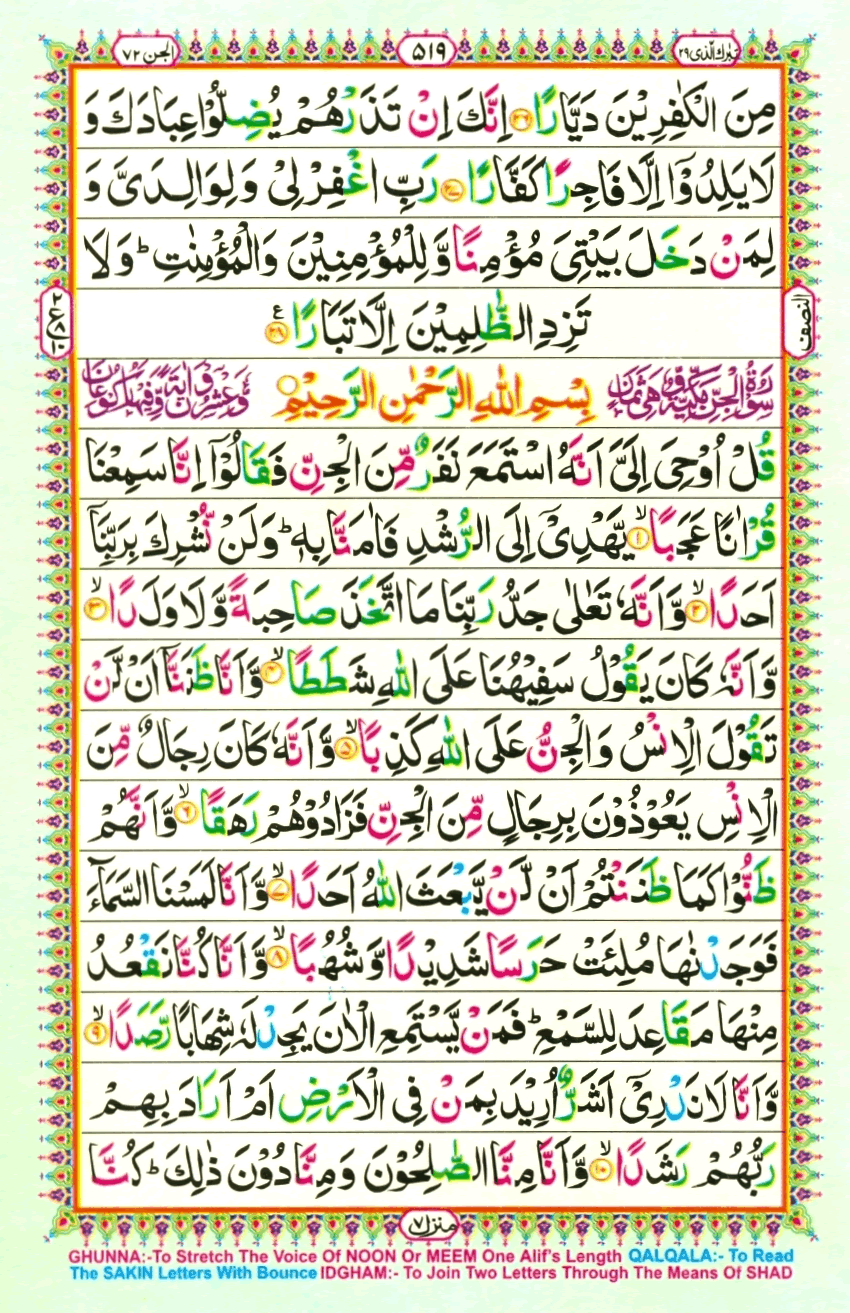 تبارك الذی ٢٩
٥١٩
الجن ٧٢
مِنَ الْكٰفِرِيْنَ دَيَّارًا ۝٢٦ اِنَّكَ اِنْ تَذَرْهُمْ يُضِلُّوْا عِبَادَكَ وَ
لَا يَلِدُوْۤا اِلَّا فَاجِرًا كَفَّارًا ۝٢٧ رَبِّ اغْفِرْ لِیْ وَ لِوَالِدَیَّ وَ
لِمَنْ دَخَلَ بَيْتِیَ مُؤْمِنًا وَّ لِلْمُؤْمِنِيْنَ وَ الْمُؤْمِنٰتِ ؕ وَ لَا
تَزِدِ الظّٰلِمِيْنَ اِلَّا تَبَارًا ۝٢٨ ع
النصف
٢ ع ٨ ١٠
سُوْرَةُ الْجِنِّ مَكِّيَّةٌ وَّهِیَ ثَمَانٍ بِسْمِ اللّٰهِ الرَّحْمٰنِ الرَّحِيْمِ وَّعِشْرُوْنَ اٰيَةً وَّفِيْهَا رُكُوْعَانِ
قُلْ اُوْحِیَ اِلَیَّ اَنَّهُ اسْتَمَعَ نَفَرٌ مِّنَ الْجِنِّ فَقَالُوْۤا اِنَّا سَمِعْنَا
قُرْاٰنًا عَجَبًا ۙ۝١ يَّهْدِیْۤ اِلَی الرُّشْدِ فَاٰمَنَّا بِهٖ ؕ وَ لَنْ نُّشْرِكَ بِرَبِّنَاۤ
اَحَدًا ۙ۝٢ وَّ اَنَّهٗ تَعٰلٰی جَدُّ رَبِّنَا مَا اتَّخَذَ صَاحِبَةً وَّ لَا وَلَدًا ۙ۝٣
وَّ اَنَّهٗ كَانَ يَقُوْلُ سَفِيْهُنَا عَلَی اللّٰهِ شَطَطًا ۙ۝٤ وَّ اَنَّا ظَنَنَّاۤ اَنْ لَّنْ
تَقُوْلَ الْاِنْسُ وَ الْجِنُّ عَلَی اللّٰهِ كَذِبًا ۙ۝٥ وَّ اَنَّهٗ كَانَ رِجَالٌ مِّنَ
الْاِنْسِ يَعُوْذُوْنَ بِرِجَالٍ مِّنَ الْجِنِّ فَزَادُوْهُمْ رَهَقًا ۙ۝٦ وَّ اَنَّهُمْ
ظَنُّوْا كَمَا ظَنَنْتُمْ اَنْ لَّنْ يَّبْعَثَ اللّٰهُ اَحَدًا ۙ۝٧ وَّ اَنَّا لَمَسْنَا السَّمَآءَ
فَوَجَدْنٰهَا مُلِئَتْ حَرَسًا شَدِيْدًا وَّ شُهُبًا ۙ۝٨ وَّ اَنَّا كُنَّا نَقْعُدُ
مِنْهَا مَقَاعِدَ لِلسَّمْعِ ؕ فَمَنْ يَّسْتَمِعِ الْاٰنَ يَجِدْ لَهٗ شِهَابًا رَّصَدًا ۙ۝٩
وَّ اَنَّا لَا نَدْرِیْۤ اَشَرٌّ اُرِيْدَ بِمَنْ فِی الْاَرْضِ اَمْ اَرَادَ بِهِمْ
رَبُّهُمْ رَشَدًا ۙ۝١٠ وَّ اَنَّا مِنَّا الصّٰلِحُوْنَ وَ مِنَّا دُوْنَ ذٰلِكَ ؕ كُنَّا
منزل ٧
GHUNNA:-To Stretch The Voice Of NOON Or MEEM One Alif's Length QALQALA:- To Read
The SAKIN Letters With Bounce IDGHAM:- To Join Two Letters Through The Means Of SHAD